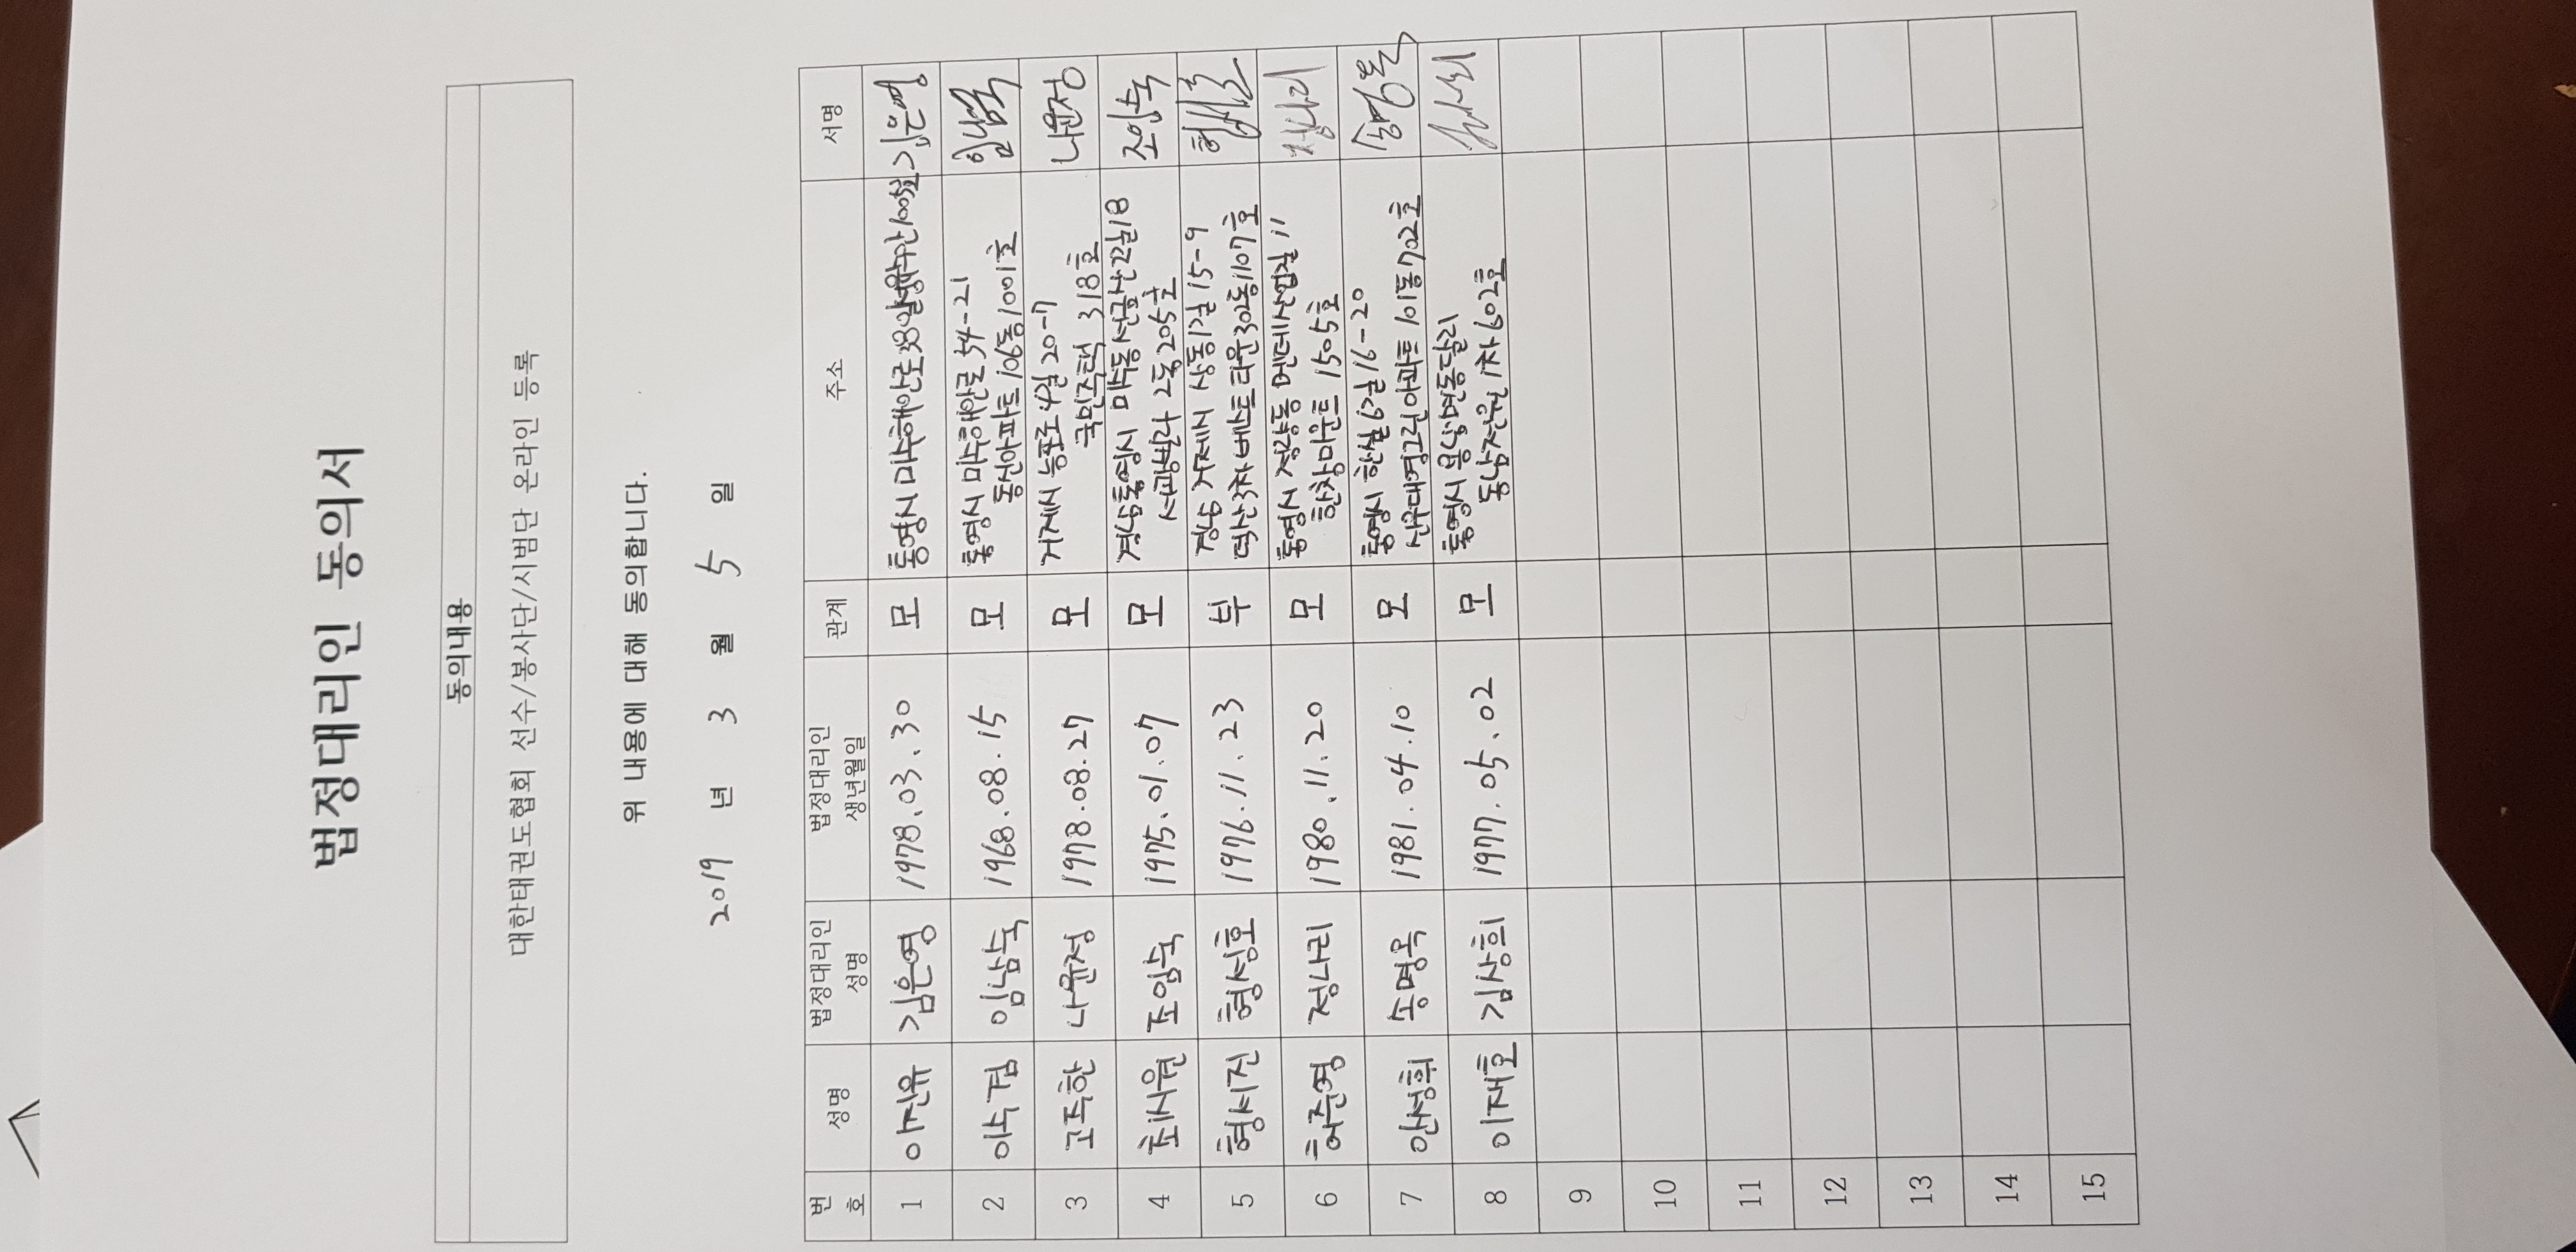 법정대리인 동의서
동의내용
대한태권도협회 선수/봉사단/시범단 온라인 등록
위 내용에 대해 동의합니다.
2019 년 3 월 5 일
번호 성명 법정대리인 성명 법정대리인 생년월일 관계 주소 서명
1 이진유 김은영 1978.03.30 모 통영시 미수해안로 김은영
2 이수겸 임남숙 1968.08.15 모 통영시 미수해안로 54-21
동원아파트 106동 1001호 임남숙
3 고주한 나윤정 1978.08.27 모 거제시 능포로4길 20-7
국민주택 318호 나윤정
4 최시원 조임숙 1975.01.07 모 경남 통영시 미수동
2동 205호 조임숙
5 형서진 형성호 1976.11.23 부 경남 거제시 상동1길 15-9
덕산3차베스트타운 302동 1107호
6 허준영 정나리 1980.11.20 모 통영시 정량동 멘데산업길 11
한창마운트 1505호 정나리
7 안성휘 송명옥 1981.04.10 모 통영시 한실2길 16-20
101동 702호
8 이재호 김상희 1977.05.02 모 통영시 용남면 동달리
1차 602호
9
10
11
12
13
14
15